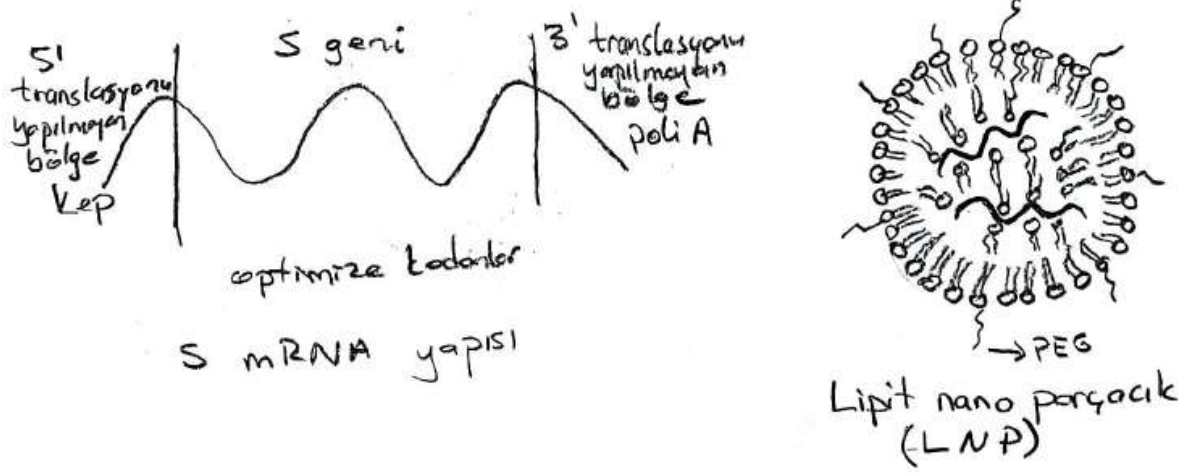 5'
translasyonu
yapılmayan
bölge
Kep
S geni
3' translasyonu
yapılmayan
bölge
poli A
optimize kodonlar
S mRNA yapısı
→ PEG
Lipit nano parçacık
(LNP)